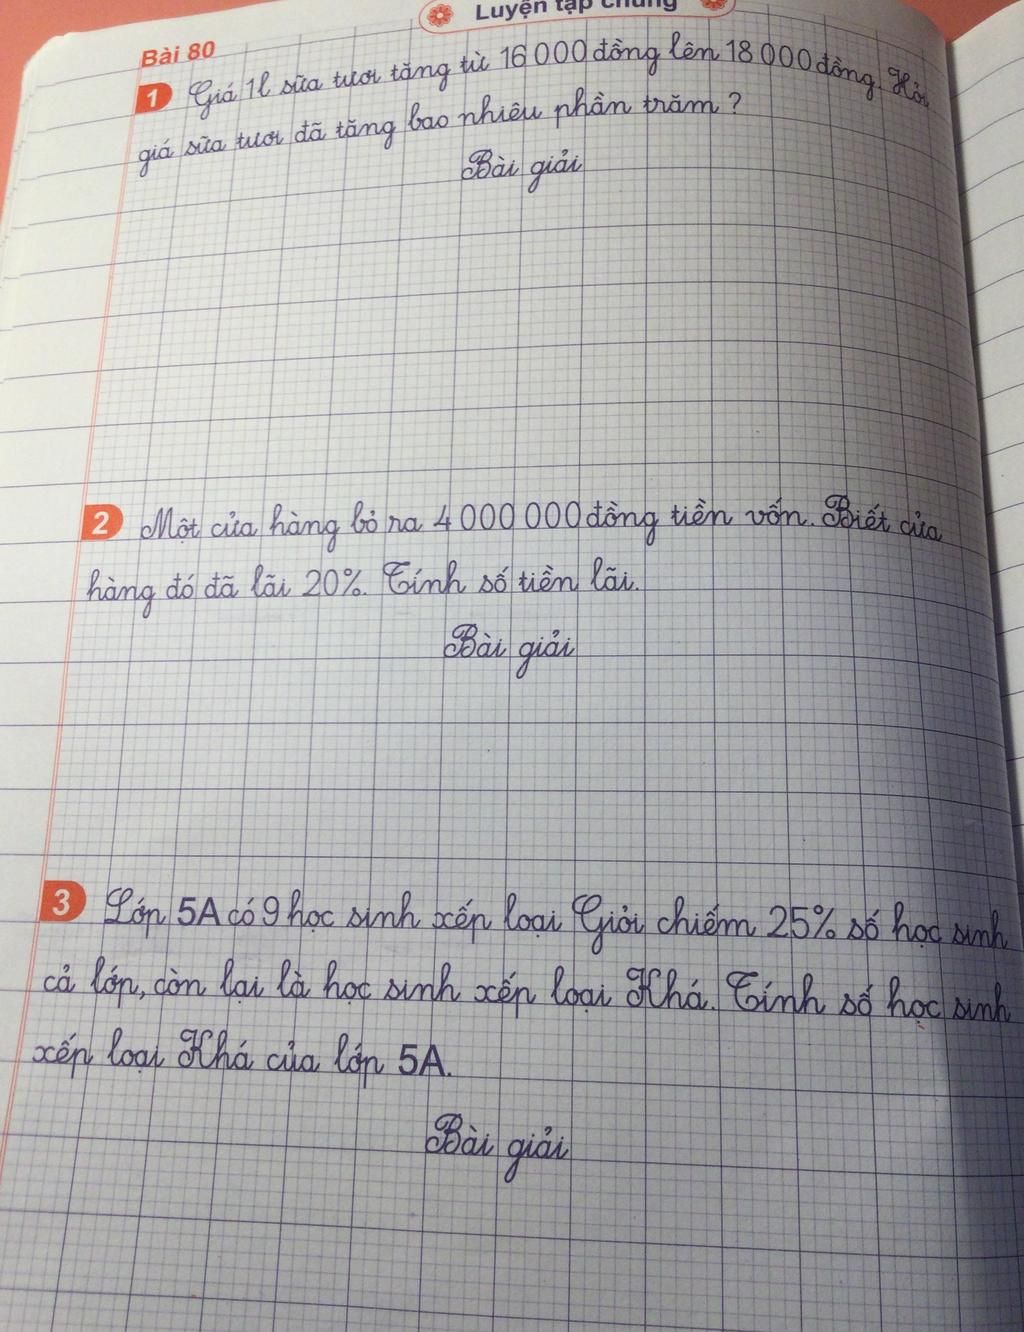 Luyện tập chung
Bài 80
1 Giá 1l sữa tươi tăng từ 16 000 đồng lên 18 000 đồng. Hỏi
giá sữa tươi đã tăng bao nhiêu phần trăm ?
Bài giải
2 Một cửa hàng bỏ ra 4 000 000 đồng tiền vốn. Biết cửa
hàng đó đã lãi 20%. Tính số tiền lãi.
Bài giải
3 Lớp 5A có 9 học sinh xếp loại Giỏi chiếm 25% số học sinh
cả lớp, còn lại là học sinh xếp loại Khá. Tính số học sinh
xếp loại Khá của lớp 5A.
Bài giải